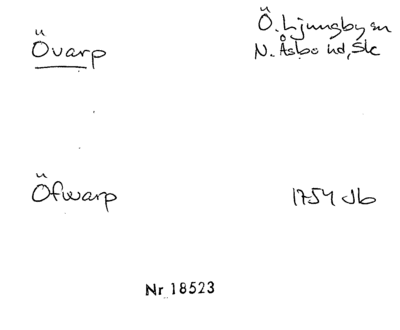 Övarp
Ö. Ljungby sn
N. Åsbo hd, Sk
Öfwarp
1754 Jb
Nr 18523